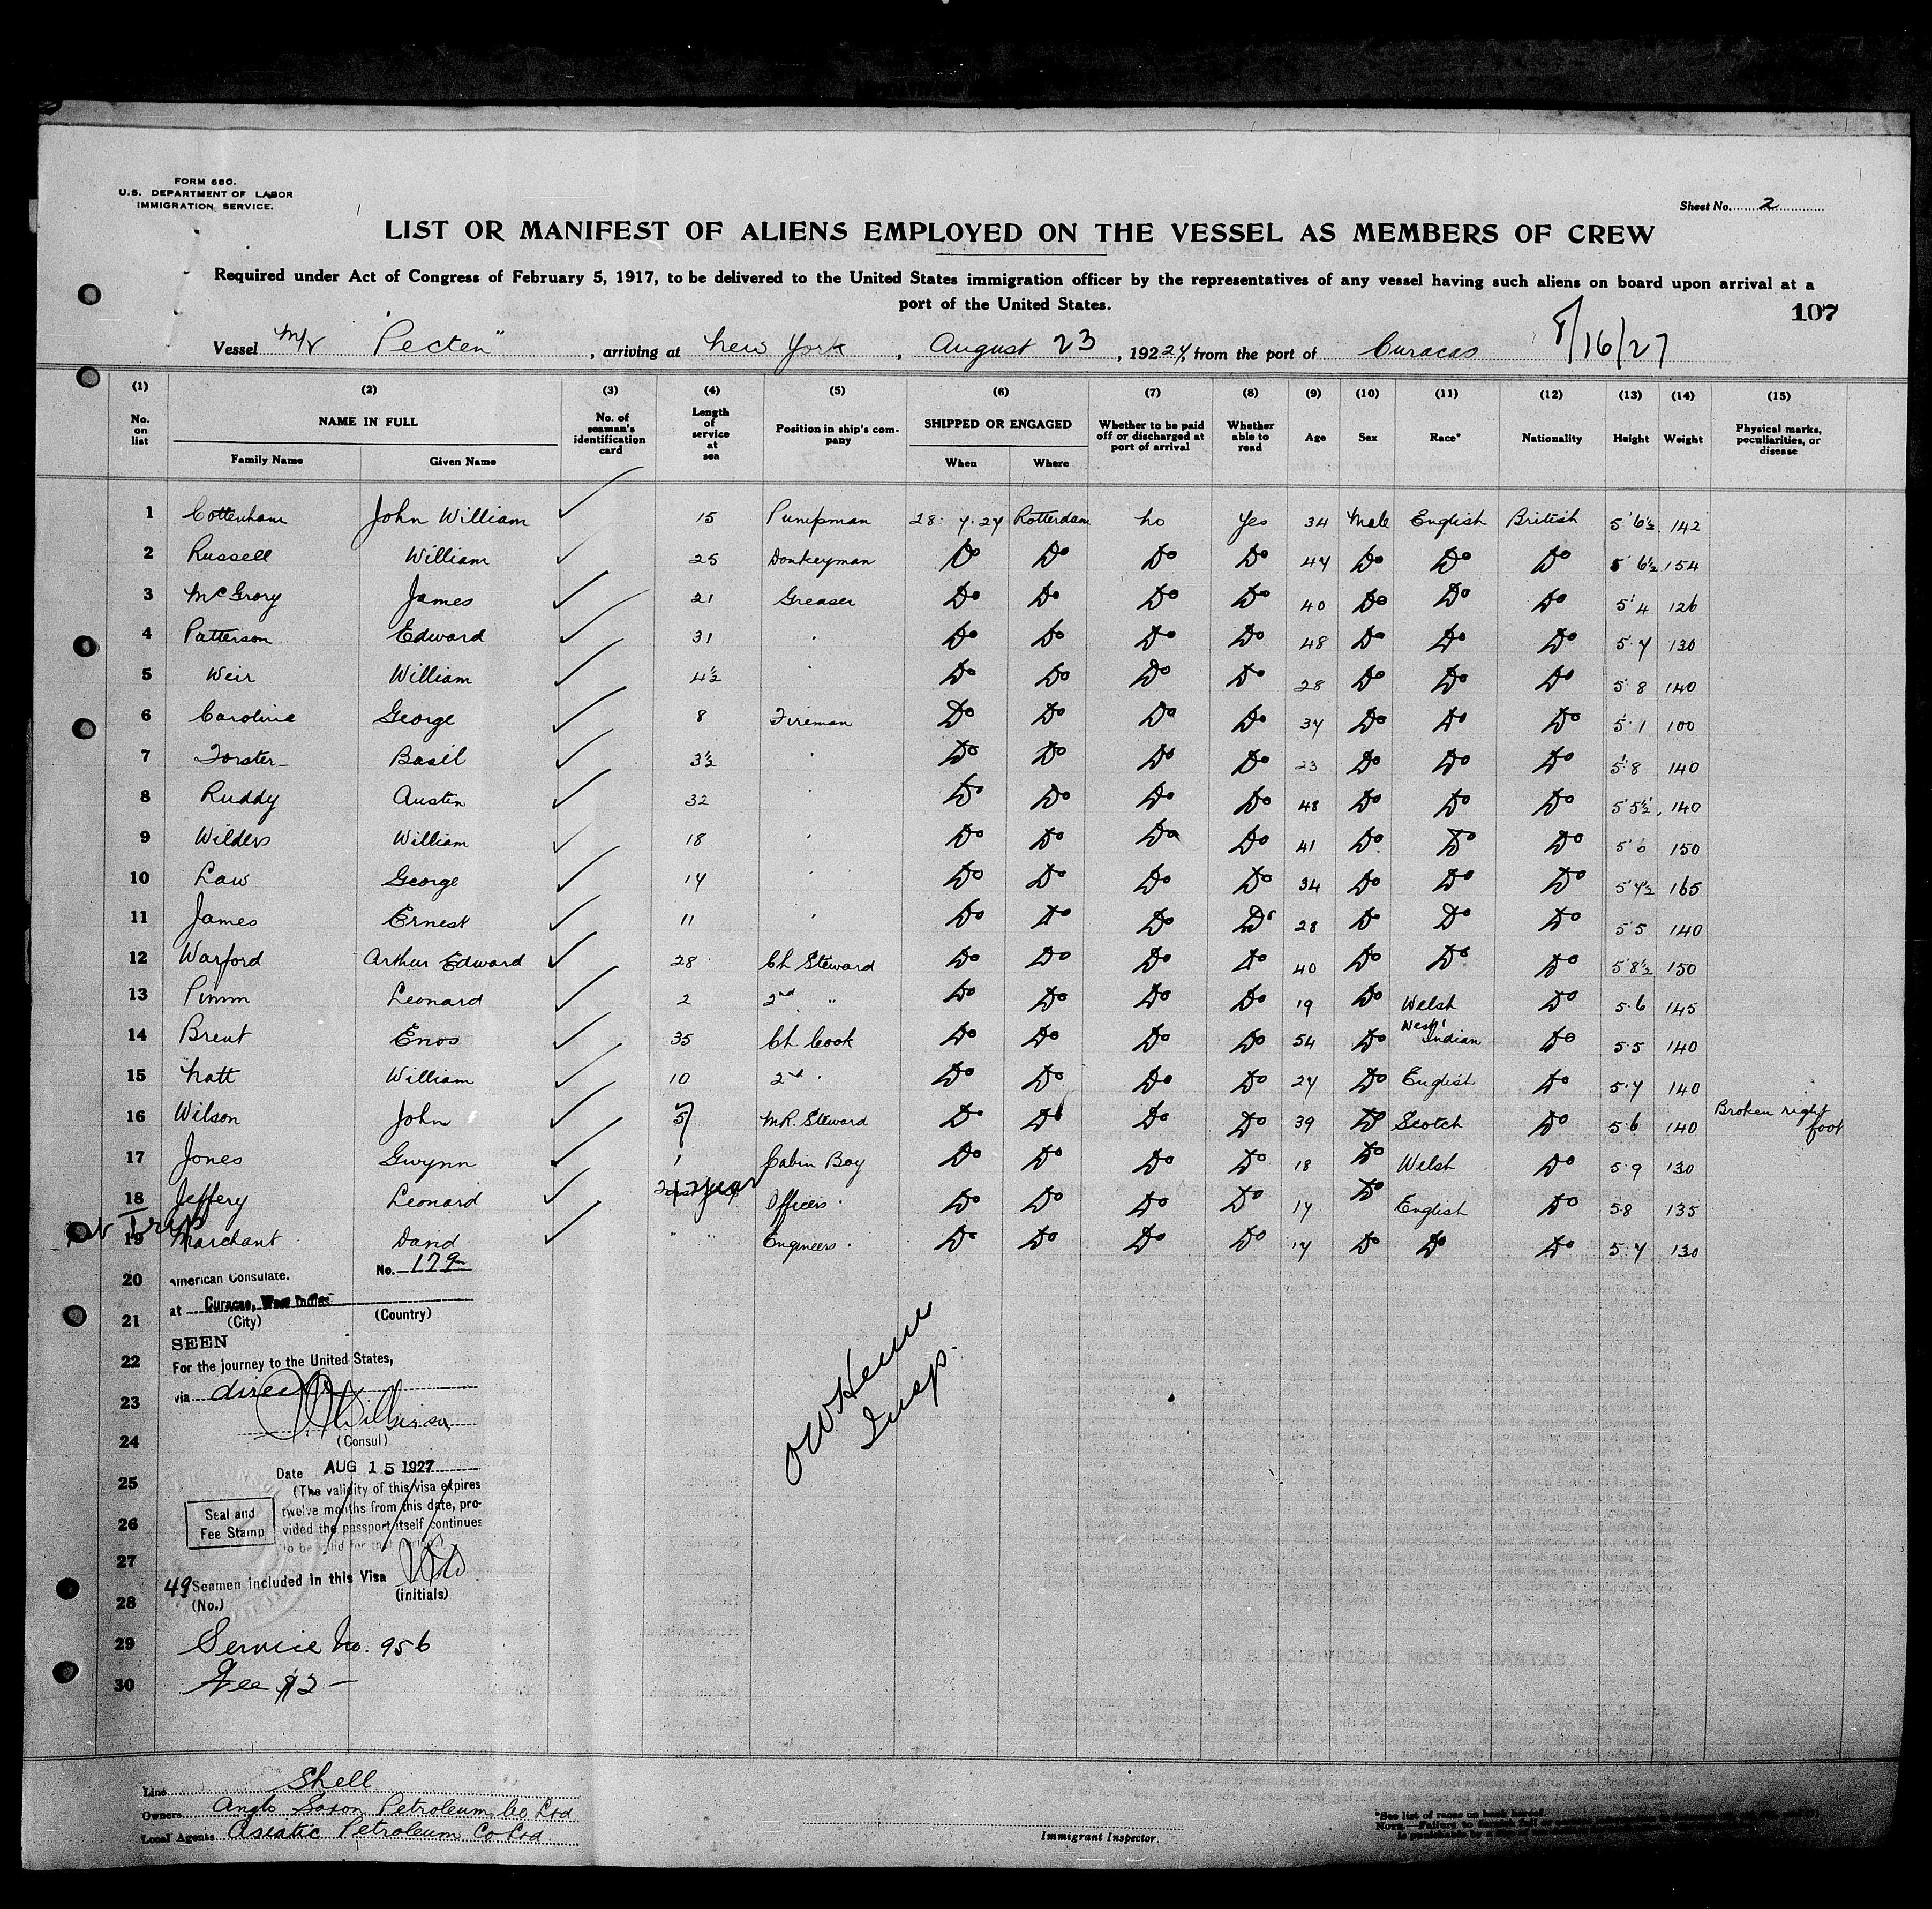 FORM 680.
U.S. DEPARTMENT OF LABOR
IMMIGRATION SERVICE.
Sheet No. 2
LIST OR MANIFEST OF ALIENS EMPLOYED ON THE VESSEL AS MEMBERS OF CREW
Required under Act of Congress of February 5, 1917, to be delivered to the United States immigration officer by the representatives of any vessel having such aliens on board upon arrival at a
port of the United States.
107
8/16/27
Vessel M/V "Pecten", arriving at New York, August 23, 192 27, from the port of Curacao
(1) (2) (3) (4) (5) (6) (7) (8) (9) (10) (11) (12) (13) (14) (15)
No. on list NAME IN FULL Family Name Given Name No. of seaman's identification card Length of service at sea Position in ship's company SHIPPED OR ENGAGED When Where Whether to be paid off or discharged at port of arrival Whether able to read Age Sex Race* Nationality Height Weight Physical marks, peculiarities, or disease
1 Cottenham John William 15 Pumpman 28. 7. 27 Rotterdam no Yes 34 Male English British 5' 6½ 142
2 Russell William 25 Donkeyman Do Do Do Do 47 Do Do Do 5 6½ 154
3 McGrory James 21 Greaser Do Do Do Do 40 Do Do Do 5' 4 126
4 Patterson Edward 31 Do Do Do Do 48 Do Do Do 5 7 130
5 Weir William 4½ Do Do Do Do 28 Do Do Do 5 8 140
6 Caroline George 8 Fireman Do Do Do Do 37 Do Do Do 5 1 100
7 Forster Basil 3½ Do Do Do Do 23 Do Do Do 5 8 140
8 Ruddy Austin 32 Do Do Do Do 48 Do Do Do 5' 5½ 140
9 Wilders William 18 Do Do Do Do 41 Do Do Do 5' 6 150
10 Law George 17 Do Do Do Do 34 Do Do Do 5' 7½ 165
11 James Ernest 11 Do Do Do Do 28 Do Do Do 5 5 140
12 Warford Arthur Edward 28 Ch Steward Do Do Do Do 40 Do Do Do 5' 8½ 150
13 Pimm Leonard 2 2nd " Do Do Do Do 19 Do Welsh Do 5.6 145
14 Brent Enos 35 Ch Cook Do Do Do Do 54 Do West Indian Do 5.5 140
15 Natt William 10 2nd Do Do Do Do 27 Do English Do 5.7 140
16 Wilson John 5 M.R. Steward Do Do Do Do 39 Do Scotch Do 5 6 140 Broken right foot
17 Jones Gwynn 1 Cabin Boy Do Do Do Do 18 Do Welsh Do 5 9 130
18 Jeffery Leonard Officers Do Do Do Do 17 Do English Do 5 8 135
19 Marchant David " " Engineers Do Do Do Do 17 Do Do Do 5 7 130
20
21
22
23
24
25
26
27
28
29
30
No. 179
American Consulate.
at Curacao, West Indies
(City) (Country)
SEEN
For the journey to the United States,
via direct
(Consul)
Date AUG 15 1927
(The validity of this visa expires
twelve months from this date, pro-
vided the passport itself continues
to be valid for that
Seal and
Fee Stamp
49 Seamen included in this Visa
(No.) (initials)
Service No. 956
Fee $2 —
Insp.
Line Shell
Owners Anglo Saxon Petroleum Co Ltd
Local Agents Asiatic Petroleum Co Ltd
Immigrant Inspector.
*See list of races on back hereof.